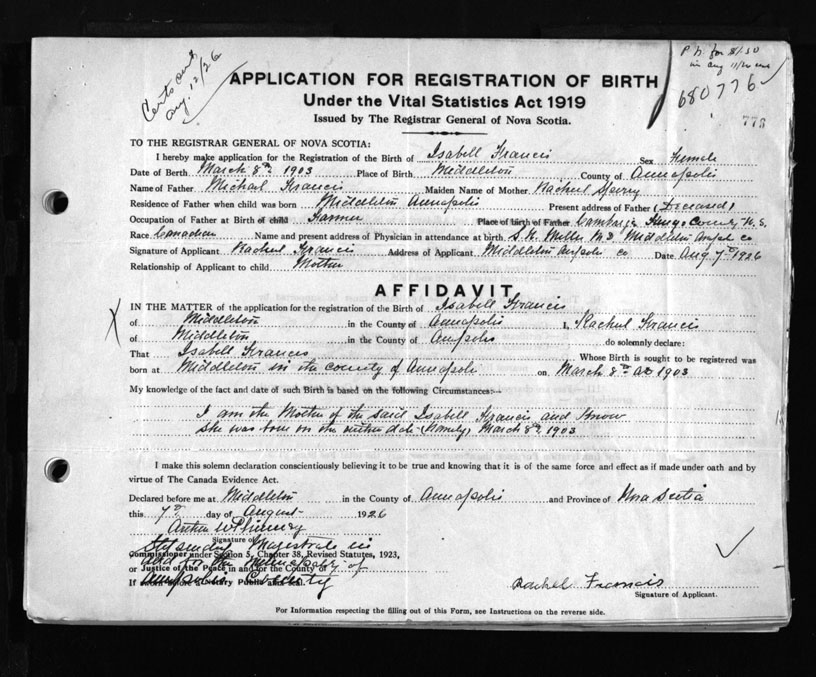 Certs out
Aug. 12/26
P N for $1.50
in Aug 11/26
680776
773
APPLICATION FOR REGISTRATION OF BIRTH
Under the Vital Statistics Act 1919
Issued by The Registrar General of Nova Scotia.
TO THE REGISTRAR GENERAL OF NOVA SCOTIA:
I hereby make application for the Registration of the Birth of Isabell Francis Sex Female
Date of Birth March 8th 1903 Place of Birth Middleton County of Annapolis
Name of Father Michael Francis Maiden Name of Mother Rachel
Residence of Father when child was born Middleton Annapolis Present address of Father (Deceased)
Occupation of Father at Birth of child Farmer Place of birth of Father Kings County N.S.
Race Canadian Name and present address of Physician in attendance at birth S. N. Miller M D Middleton co
Signature of Applicant Rachel Francis Address of Applicant Middleton co Date Aug 7th 1926
Relationship of Applicant to child Mother
AFFIDAVIT
X
IN THE MATTER of the application for the registration of the Birth of Isabell Francis
of Middleton in the County of Annapolis I, Rachel Francis
of Middleton in the County of do solemnly declare:
That Isabell Francis Whose Birth is sought to be registered was
born at Middleton in the county of Annapolis on March 8th AD 1903
My knowledge of the fact and date of such Birth is based on the following Circumstances:—
I am the Mother of the said Isabell Francis and know
she was born on the within date (Namely) March 8th 1903
I make this solemn declaration conscientiously believing it to be true and knowing that it is of the same force and effect as if made under oath and by
virtue of The Canada Evidence Act.
Declared before me at Middleton in the County of Annapolis and Province of Nova Scotia
this 7th day of August 1926
Arthur W Phinney
Signature of
Stipendiary Magistrate in
Commissioner under Section 5, Chapter 38, Revised Statutes, 1923,
and for the Municipality of
or Justice of the Peace in and for the County of
Annapolis County
If Notary Public and Seal.
Rachel Francis
Signature of Applicant.
For Information respecting the filling out of this Form, see Instructions on the reverse side.